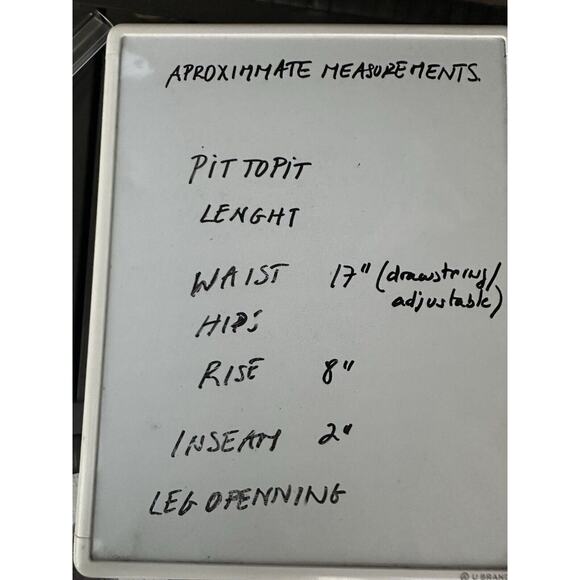 APROXIMMATE MEASUREMENTS.
PIT TO PIT
LENGHT
WAIST 17" (drawstring/
adjustable)
HIPS
RISE 8"
INSEAM 2"
LEG OPENNING
U BRAND